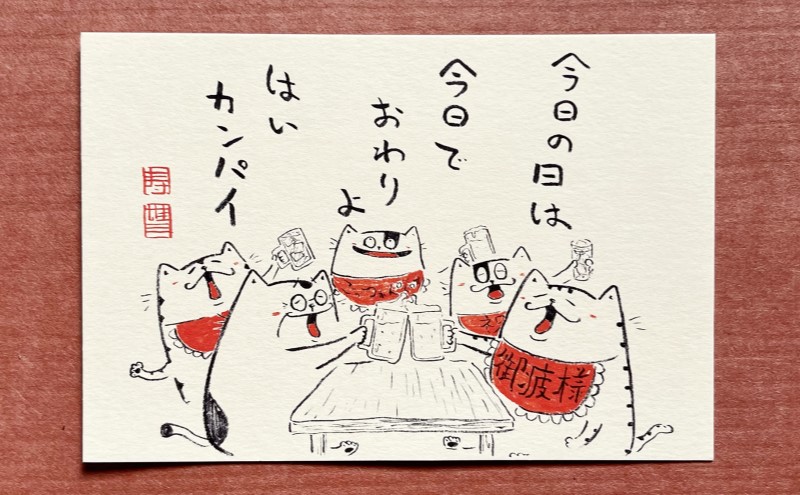 今日の日は
今日で
おわり
よ
はい
カンパイ
御疲様